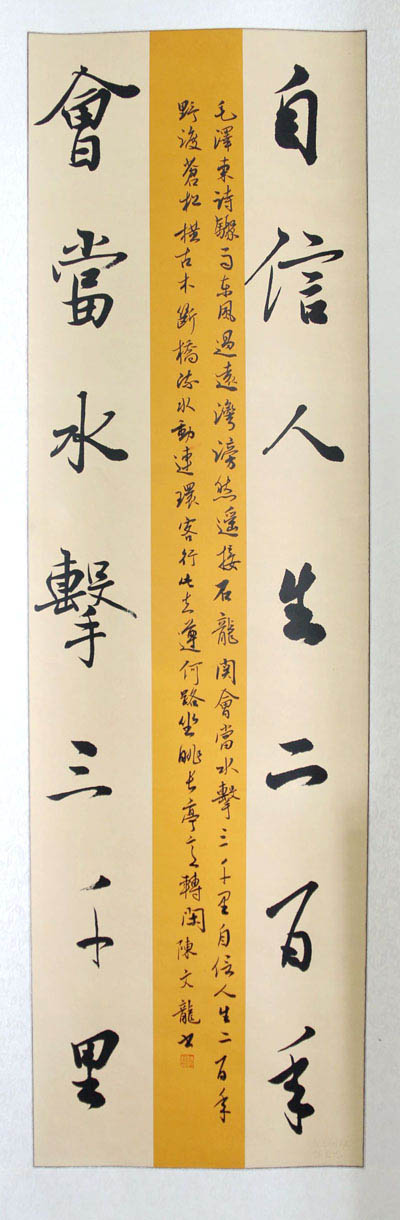 自信人生二百年
毛澤東詩驟雨东風過遠灣滂然遥接石龍関會當水擊三千里自信人生二百年
野渡蒼松横古木斷橋流水動連環客行此去遵何路坐眺長亭意轉閑陳文龍書
會當水擊三千里